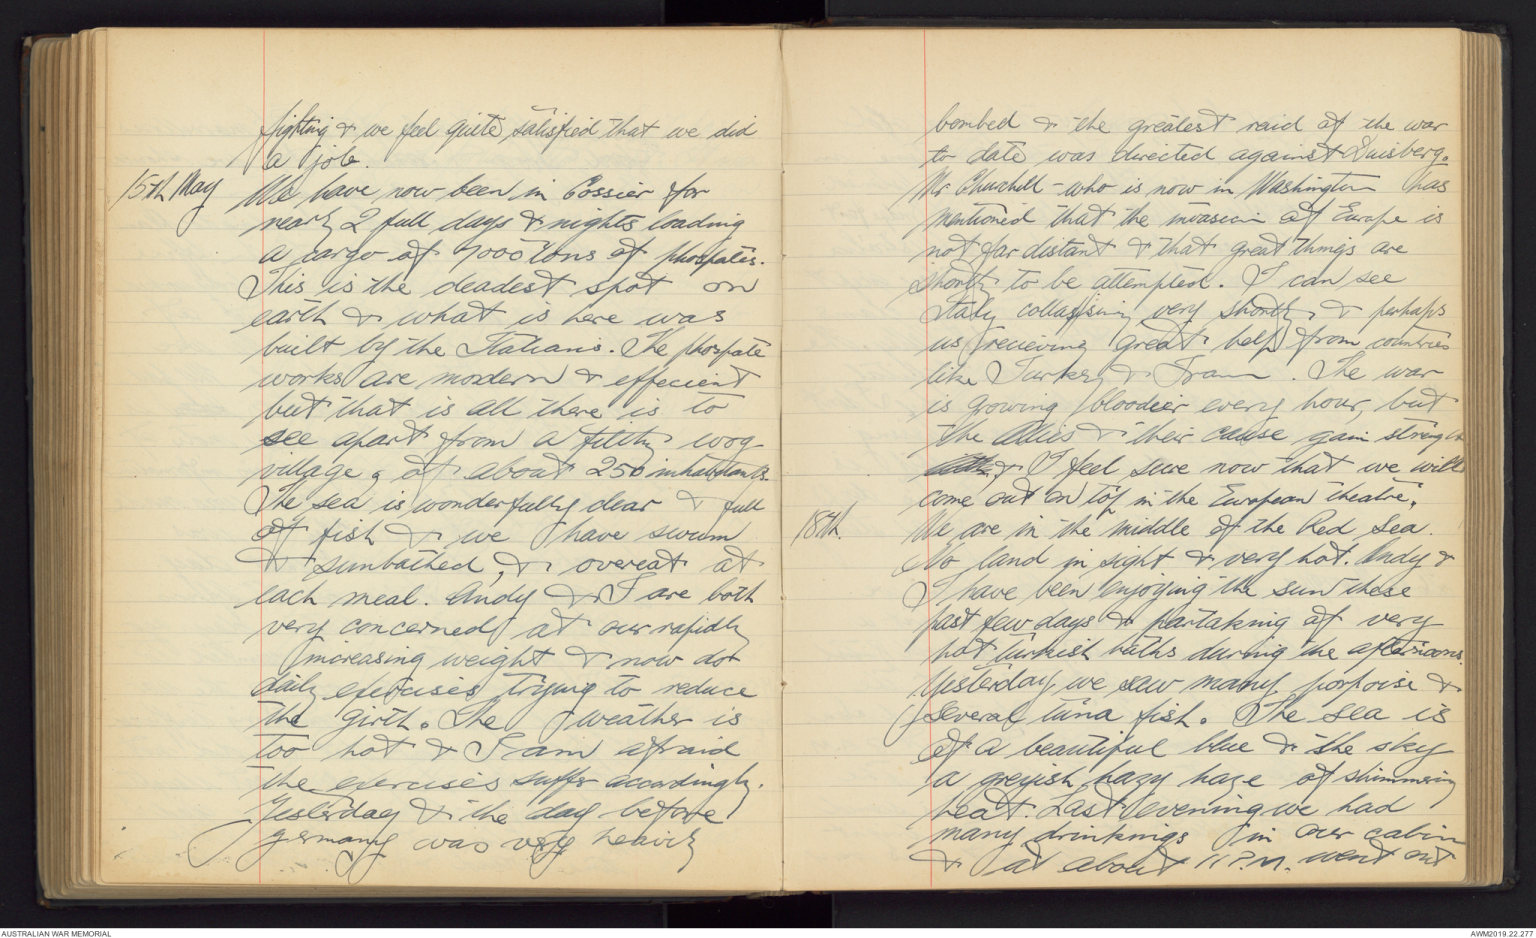 fighting & we feel quite satisfied that we did
a job.
15th May
We have now been in Cossier for
nearly 2 full days & nights loading
a cargo of 9000 tons of phospates.
This is the deadest spot on
earth & what is here was
built by the Italians. The phospate
works are modern & effecient
but that is all there is to
see apart from a filthy wog
village, of about 250 inhabitants.
The sea is wonderfully clear & full
of fish & we have swum
& sunbathed, & overeat at
each meal. Andy & I are both
very concerned at our rapidly
increasing weight & now do
daily exercises trying to reduce
the girth. The weather is
too hot & I am afraid
the exercises suffer accordingly.
Yesterday & the day before
Germany was very heavily
bombed & the greatest raid of the war
to date was directed against Duisberg.
Mr Churchill - who is now in Washington has
mentioned that the invasion of Europe is
not far distant & that great things are
shortly to be attempted. I can see
Italy collapsing very shortly, & perhaps
us recieving great help from countries
like Turkey & France. The war
is growing bloodier every hour, but
the Allies & their cause gain strength
& I feel sure now that we will
come out on top in the European theatre.
18th.
We are in the middle of the Red Sea.
No land in sight & very hot. Andy &
I have been enjoying the sun these
past few days & partaking of very
hot turkish baths during the afternoons.
Yesterday we saw many porpoise &
several tuna fish. The sea is
of a beautiful blue & the sky
a greyish hazy haze of shimmering
heat. Last evening we had
many drinkings in our cabin
& at about 11 P.M. went out
AUSTRALIAN WAR MEMORIAL
AWM2019.22.277